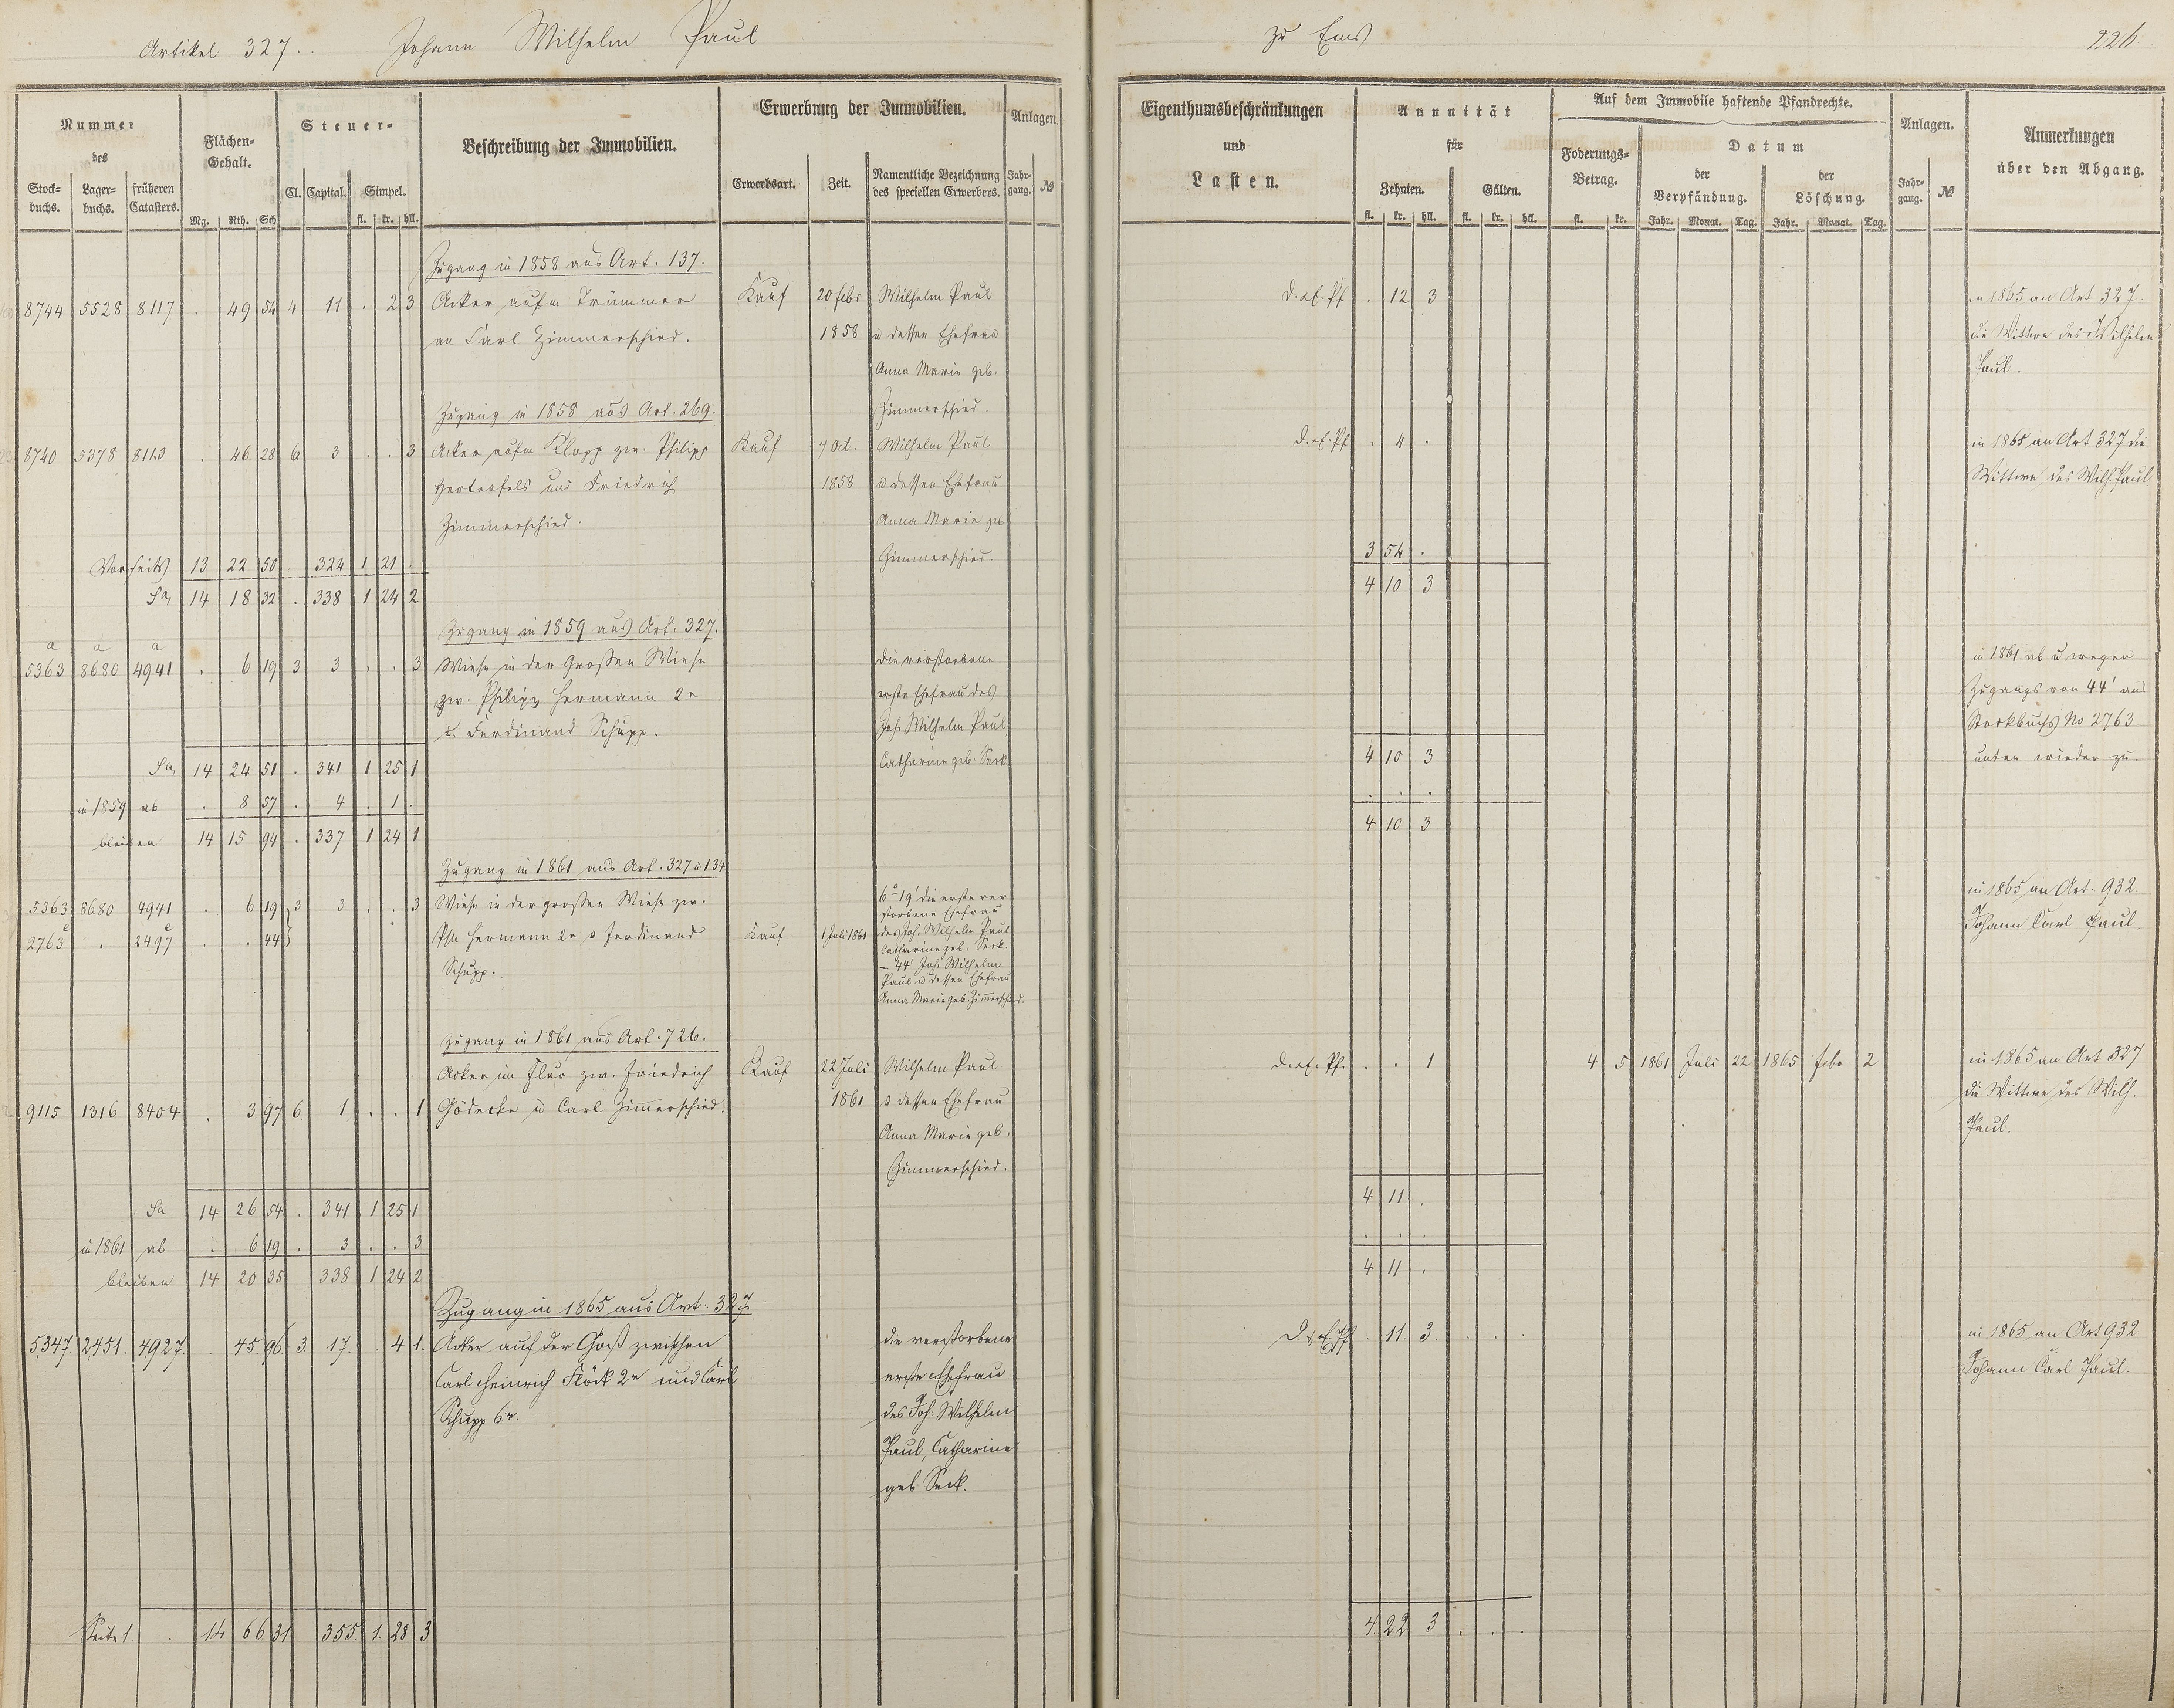 Artikel 327.. Johann Wilhelm Paul
zu Ems
226
Nummer des
Stock-buchs.
Lager-buchs.
früheren Catasters.
Flächen-Gehalt.
Mg. Rth. Sch
Steuer-
Cl. Capital. Simpel.
fl. kr. hll.
Beschreibung der Immobilien.
Erwerbung der Immobilien.
Erwerbsart. Zeit. Namentliche Bezeichnung des speciellen Erwerbers.
Anlagen.
Jahr-gang. №
Eigenthumsbeschränkungen
und
Lasten.
Annuität
für
Zehnten. Gülten.
fl. kr. hll. fl. kr. hll.
Auf dem Immobile haftende Pfandrechte.
Foderungs-Betrag.
fl. kr.
Datum
der Verpfändung. der Löschung.
Jahr. Monat. Tag. Jahr. Monat. Tag.
Anlagen.
Jahr-gang. №
Anmerkungen
über den Abgang.
Zugang in 1858 aus Art. 137.
8744 5528 8117 . 49 54 4 11 . 2 3 Acker aufm Trümmer Kauf 20 febr Wilhelm Paul d. . Pf . 12 3 in 1865 an Art 327.
an Carl Zimmerschied. 1858 u dessen Ehefrau die Wittwe des Wilhelm
Anna Marie geb. Paul.
Zugang in 1858 aus Art. 269. Zimmerschied.
8740 5378 8113 . 46 28 6 3 . . 3 Acker aufm Klopp zw. Philipp Kauf 7 Oct. Wilhelm Paul . 4 . in 1865 an Art 327 die
und Friedrich 1858 u dessen Ehefrau Wittwe des Wilh. Paul
Zimmerschied. Anna Marie geb
Vorseits 13 22 50 . 324 1 21 . Zimmerschied. 3 54 .
Sa, 14 18 32 . 338 1 24 2 4 10 3
Zugang in 1859 aus Art. 327.
a a a
5363 8680 4941 . 6 19 3 3 . . 3 Wiese in der Großen Wiese die verstorbene in 1861 ab u wegen
zw. Philipp Hermann 2r erste Ehefrau des Zugangs von 44' aus
u. Ferdinand Schupp. Joh. Wilhelm Paul Stockbuchs No 2763
Sa, 14 24 51 . 341 1 25 1 Catharine geb. Seck 4 10 3 unten wieder zu.
in 1859 ab . 8 57 . 4 . 1 . . . .
bleiben 14 15 94 . 337 1 24 1 4 10 3
Zugang in 1861 aus Art. 327 u 134
5363 8680 4941 . 6 19 3 3 . . 3 Wiese in der großen Wiese zw. 6° 19' die erste ver in 1865 an Art. 932
storbene Ehefrau Johann Carl Paul.
2763 . 2497 . . 44 Hermann 2r u Ferdinand Kauf 1 Juli 1861 des Joh. Wilhelm Paul
Catharine geb. Seck.
Schupp. – 44' Joh. Wilhelm
Paul u dessen Ehefrau
Anna Marie geb. Zimmerschied.
Zugang in 1861 aus Art. 726.
Acker im Flur zw. Friedrich Kauf 22 Juli Wilhelm Paul . . 1 4 5 1861 Juli 22 1865 febr 2 in 1865 an Art 327
9115 1316 8404 . 3 97 6 1 . . 1 Gödecke u Carl Zimmerschied. 1861 u dessen Ehefrau die Wittwe des Wilh.
Anna Marie geb. Paul.
Zimmerschied.
Sa 14 26 54 . 341 1 25 1 4 11 .
in 1861 ab . 6 19 . 3 . . 3 . . .
bleiben 14 20 35 338 1 24 2 4 11 .
Zugang in 1865 aus Art. 327
5347. 2451. 4927 45 96 3 17. . 4 1. Acker auf der zwischen die verstorbene . 11. 3. . . . in 1865 an Art 932
Carl Heinrich Flöck 2r und Carl erste Ehefrau Johann Carl Paul.
Schupp 6r. des Joh. Wilhelm
Paul, Catharine
geb Seck.
Seite 1 . 14 66 31 355 1. 28 3 4. 22 3 . . .